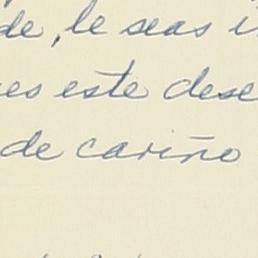 de, le seas i
es este dese
de cariño